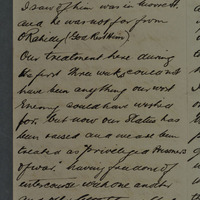 I saw of him was in Moore St
and he was not far from
O'Rahilly (God Rest Him)
Our treatment here during
the first three weeks could not
have been anything our worst
Enemy could have wished
for. but now our Status has
been raised and we are been
treated as "privileged Prisoners
of war," having freedom of
intercourse with one another